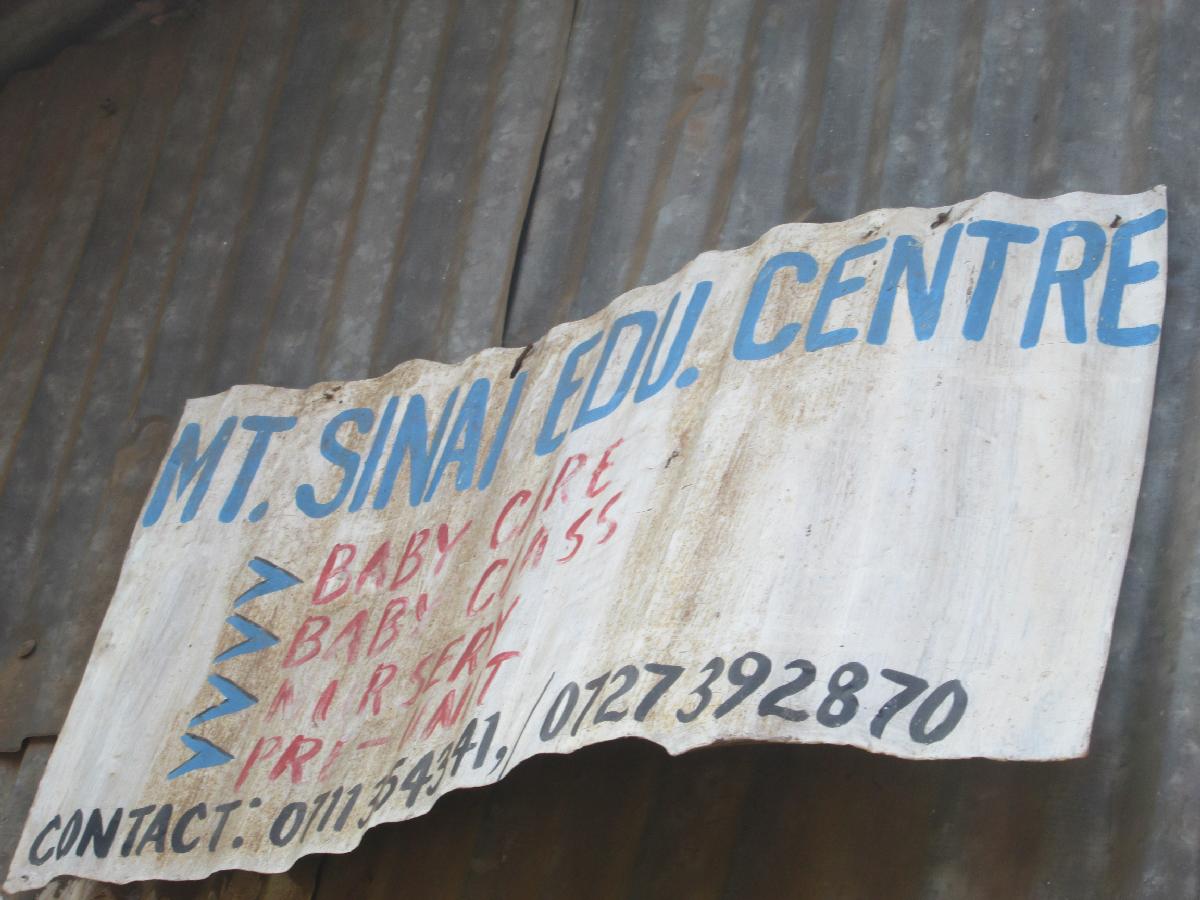 MT. SINAI EDU. CENTRE
BABY CARE
BABY CLASS
NURSERY
PRE-UNIT
CONTACT: 0711354341,/0727392870